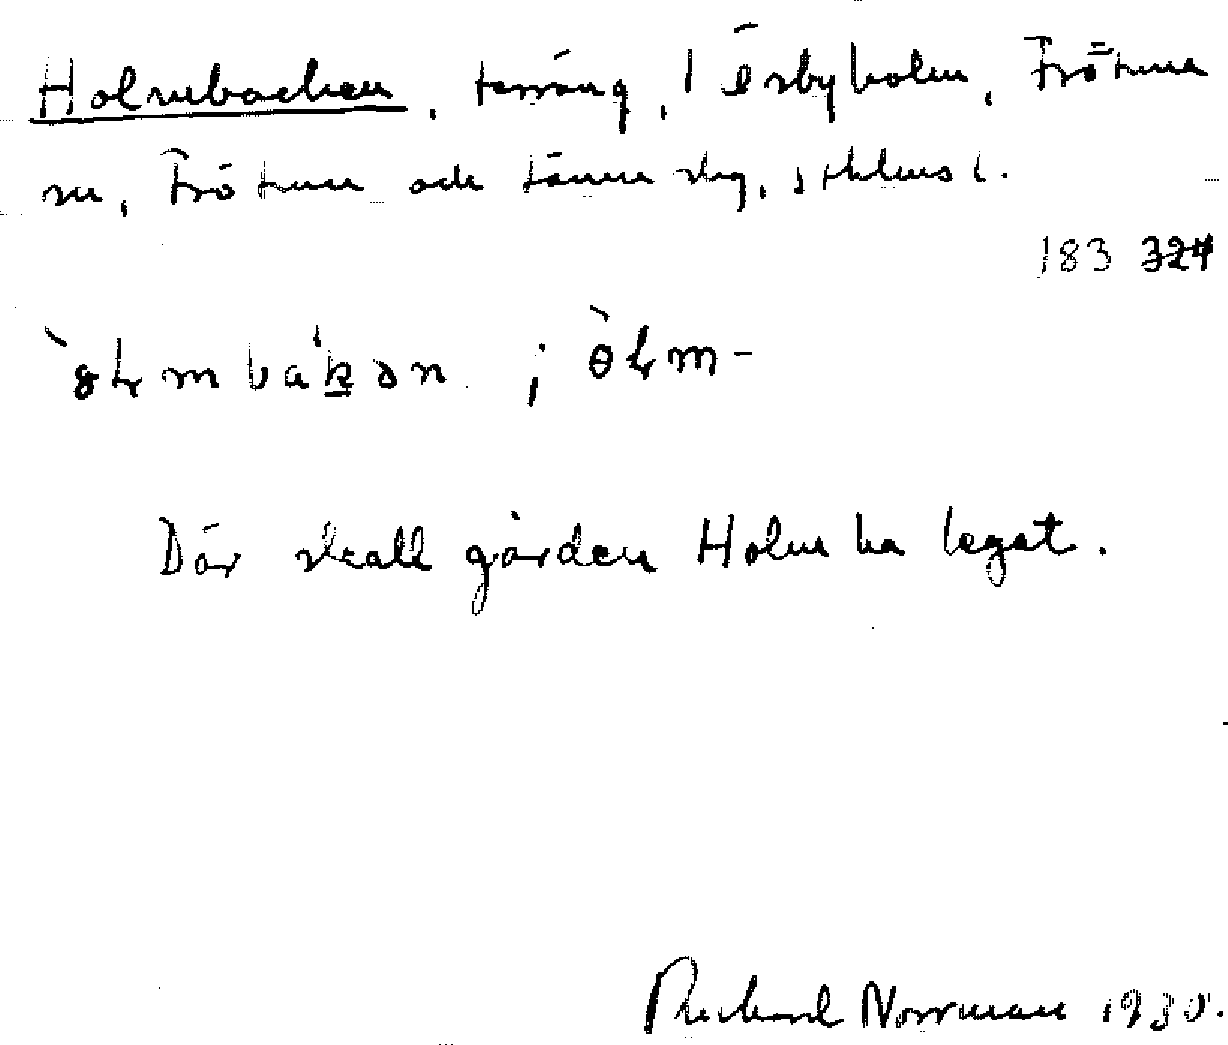 Holmbacken, terräng, Ö sbyholm, Frötuna
sn, Frötuna och Länna skg, Sthlms l.
183 324
`ɵɫmbák̲ən ; ɵ̀ɫm-
Där skall gården Holm ha legat.
Richard Norrman 1930.